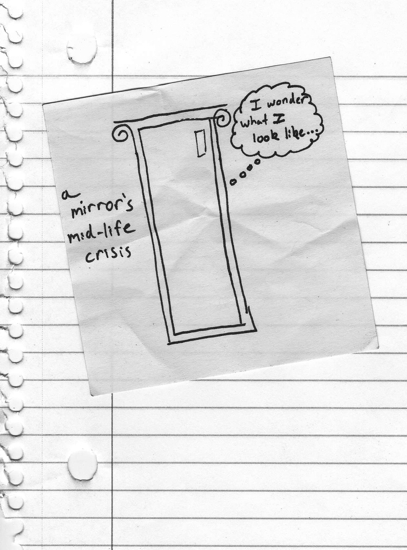 I wonder
what I
look like...
a
mirror's
mid-life
crisis